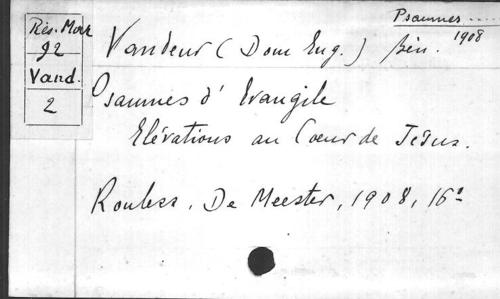 Rés. Mor
92
Vand.
2
Psaumes ....
1908
Vandeur (Dom Eug.) bén.
Psaumes d'Evangile
Elévations au Cœur de Jésus.
Roulers, De Meester, 1908, 16°